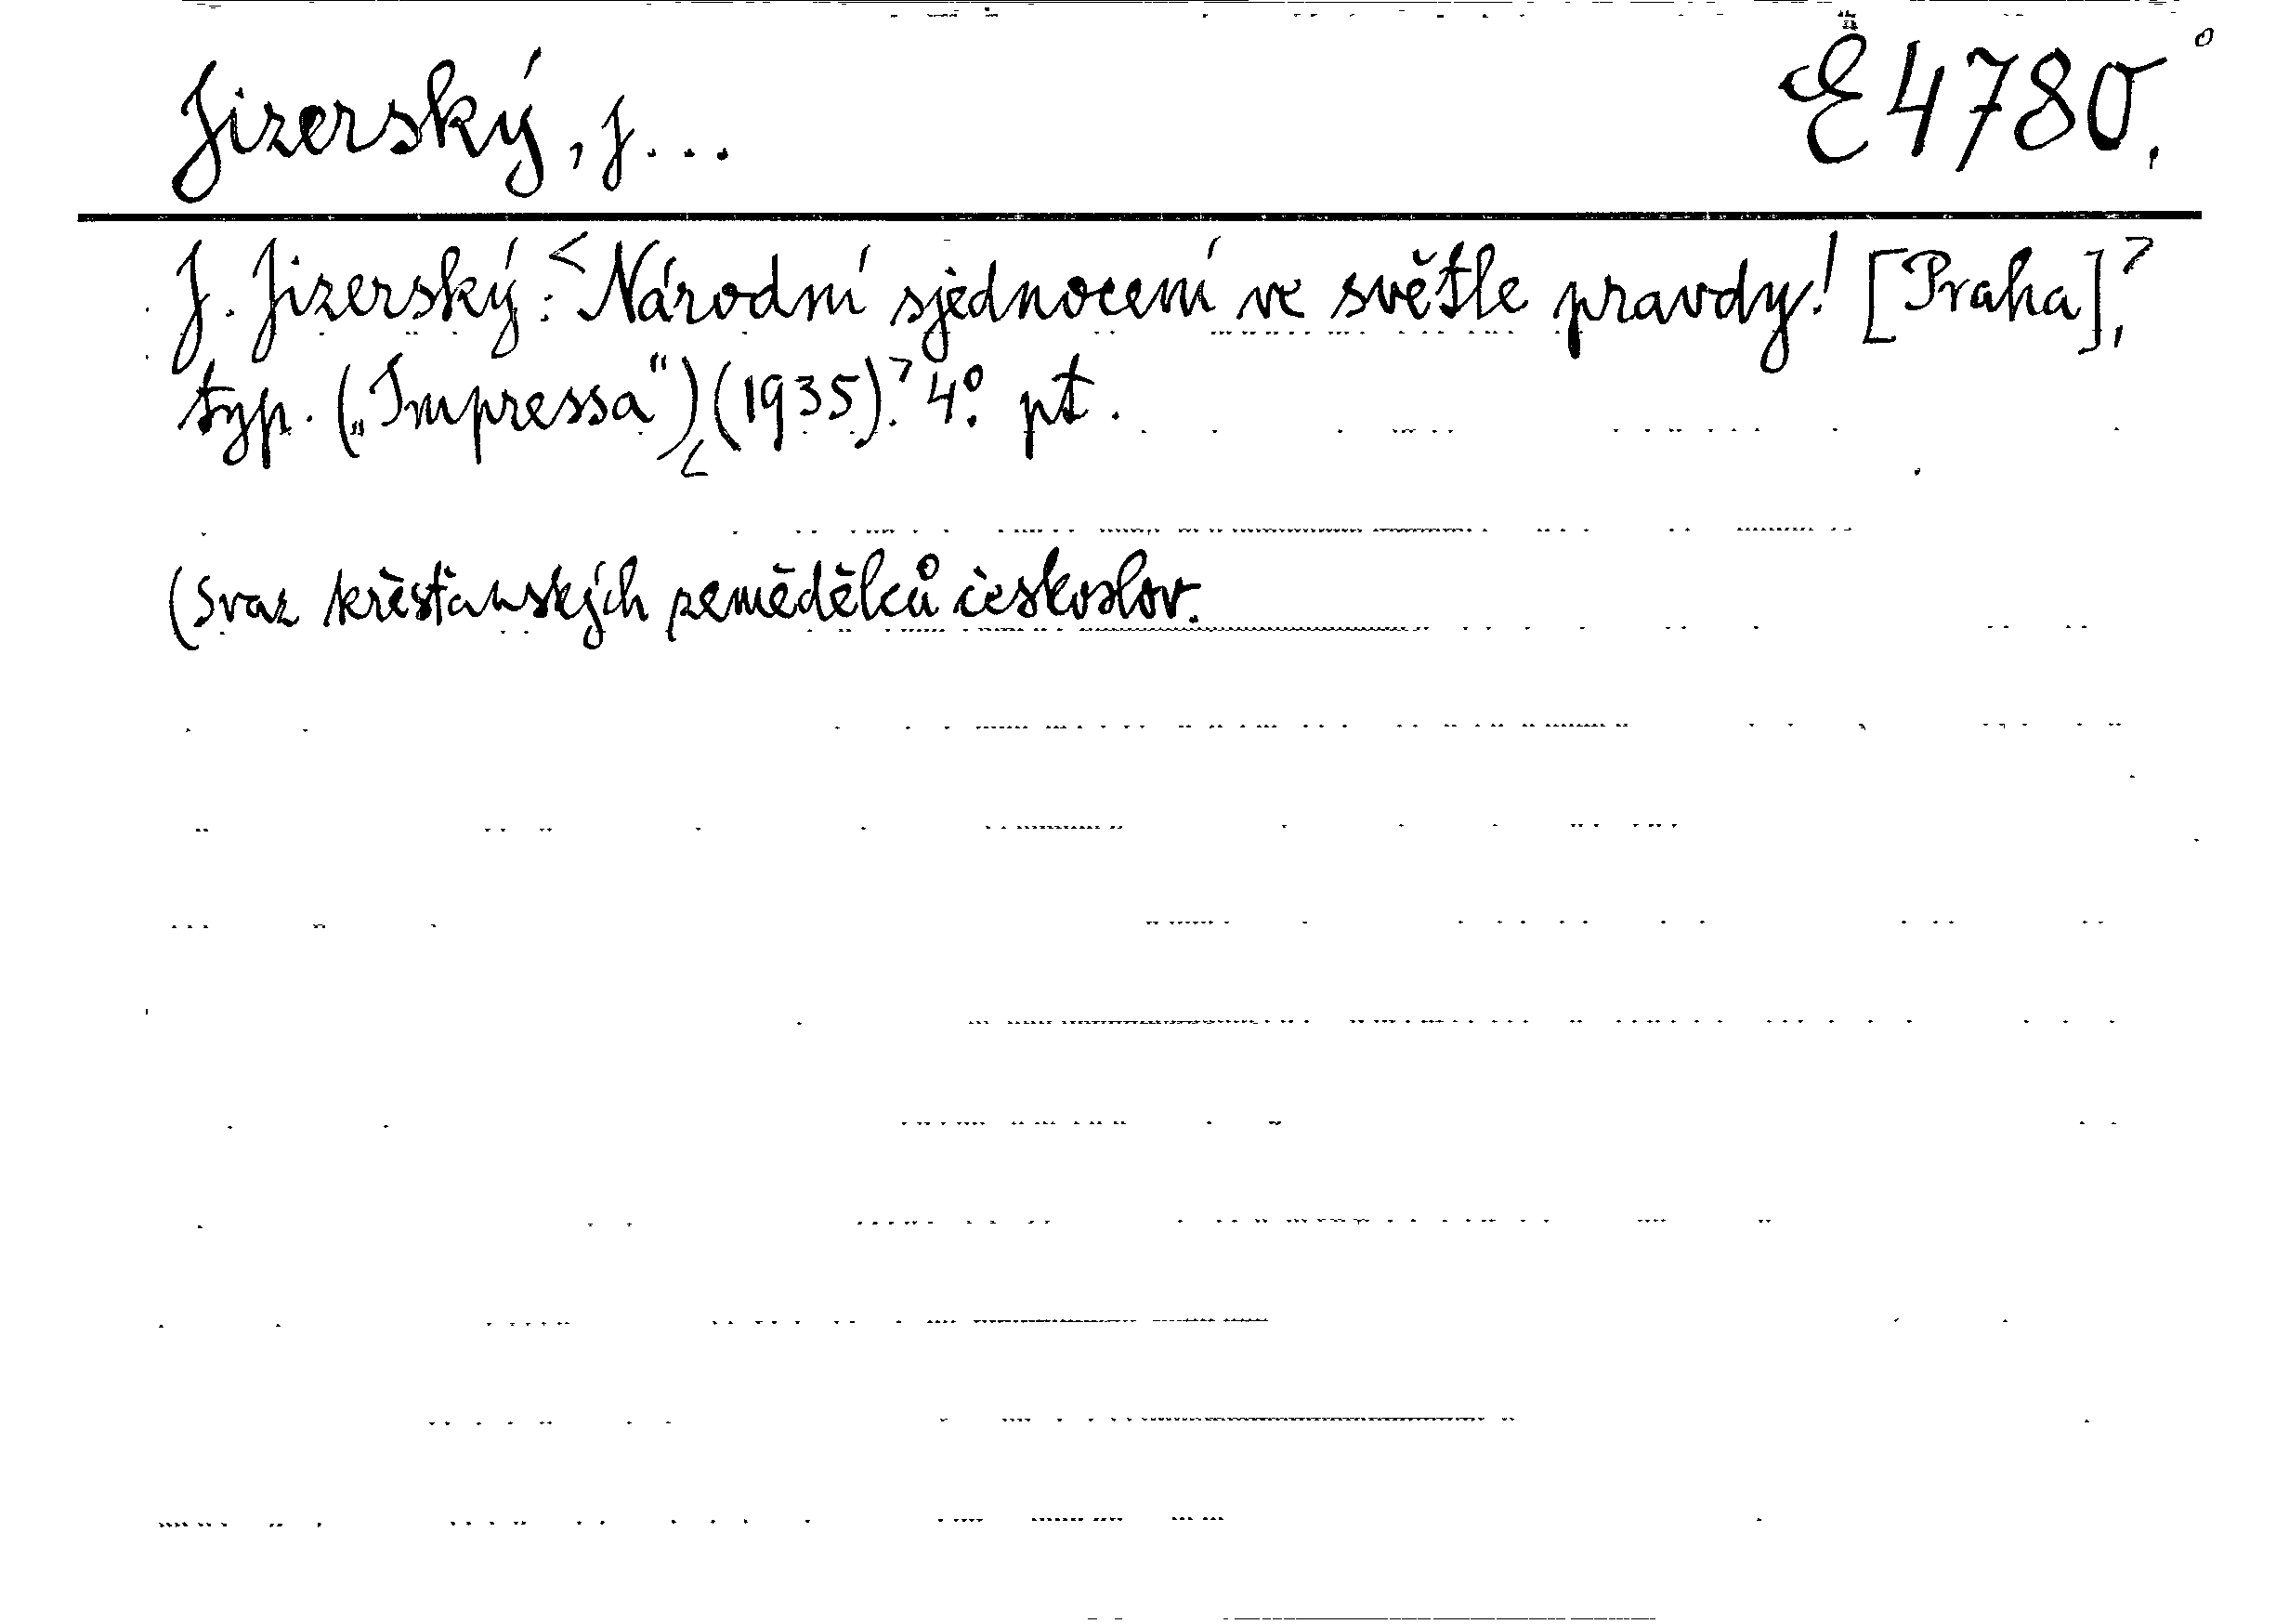 Jizerský, J... E 4780.
J. Jizerský: < Národní sjednocení ve světle pravdy! [Praha],>
typ. („Impressa“) < (1935).> 4°. pt.
(Svaz křesťanských zemědělců českoslov.